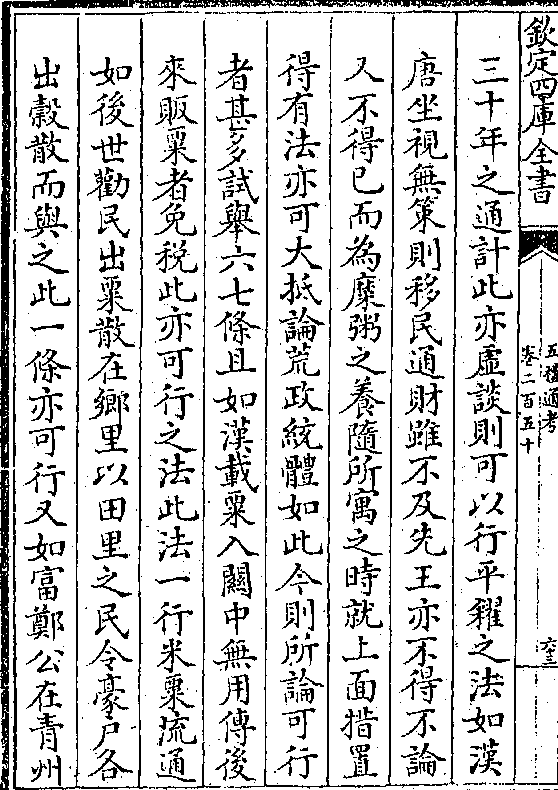 欽定四庫全書
五禮通考
卷二百五十
六十三
三十年之通計此亦虛談則可以行平糴之法如漢
唐坐視無策則移民通財雖不及先王亦不得不論
又不得已而為糜粥之養隨所寓之時就上面措置
得有法亦可大抵論荒政統體如此今則所論可行
者甚多試舉六七條且如漢載粟入關中無用傳後
來販粟者免稅此亦可行之法此法一行米粟流通
如後世勸民出粟散在鄉里以田里之民令豪戶各
出穀散而與之此一條亦可行又如富鄭公在青州